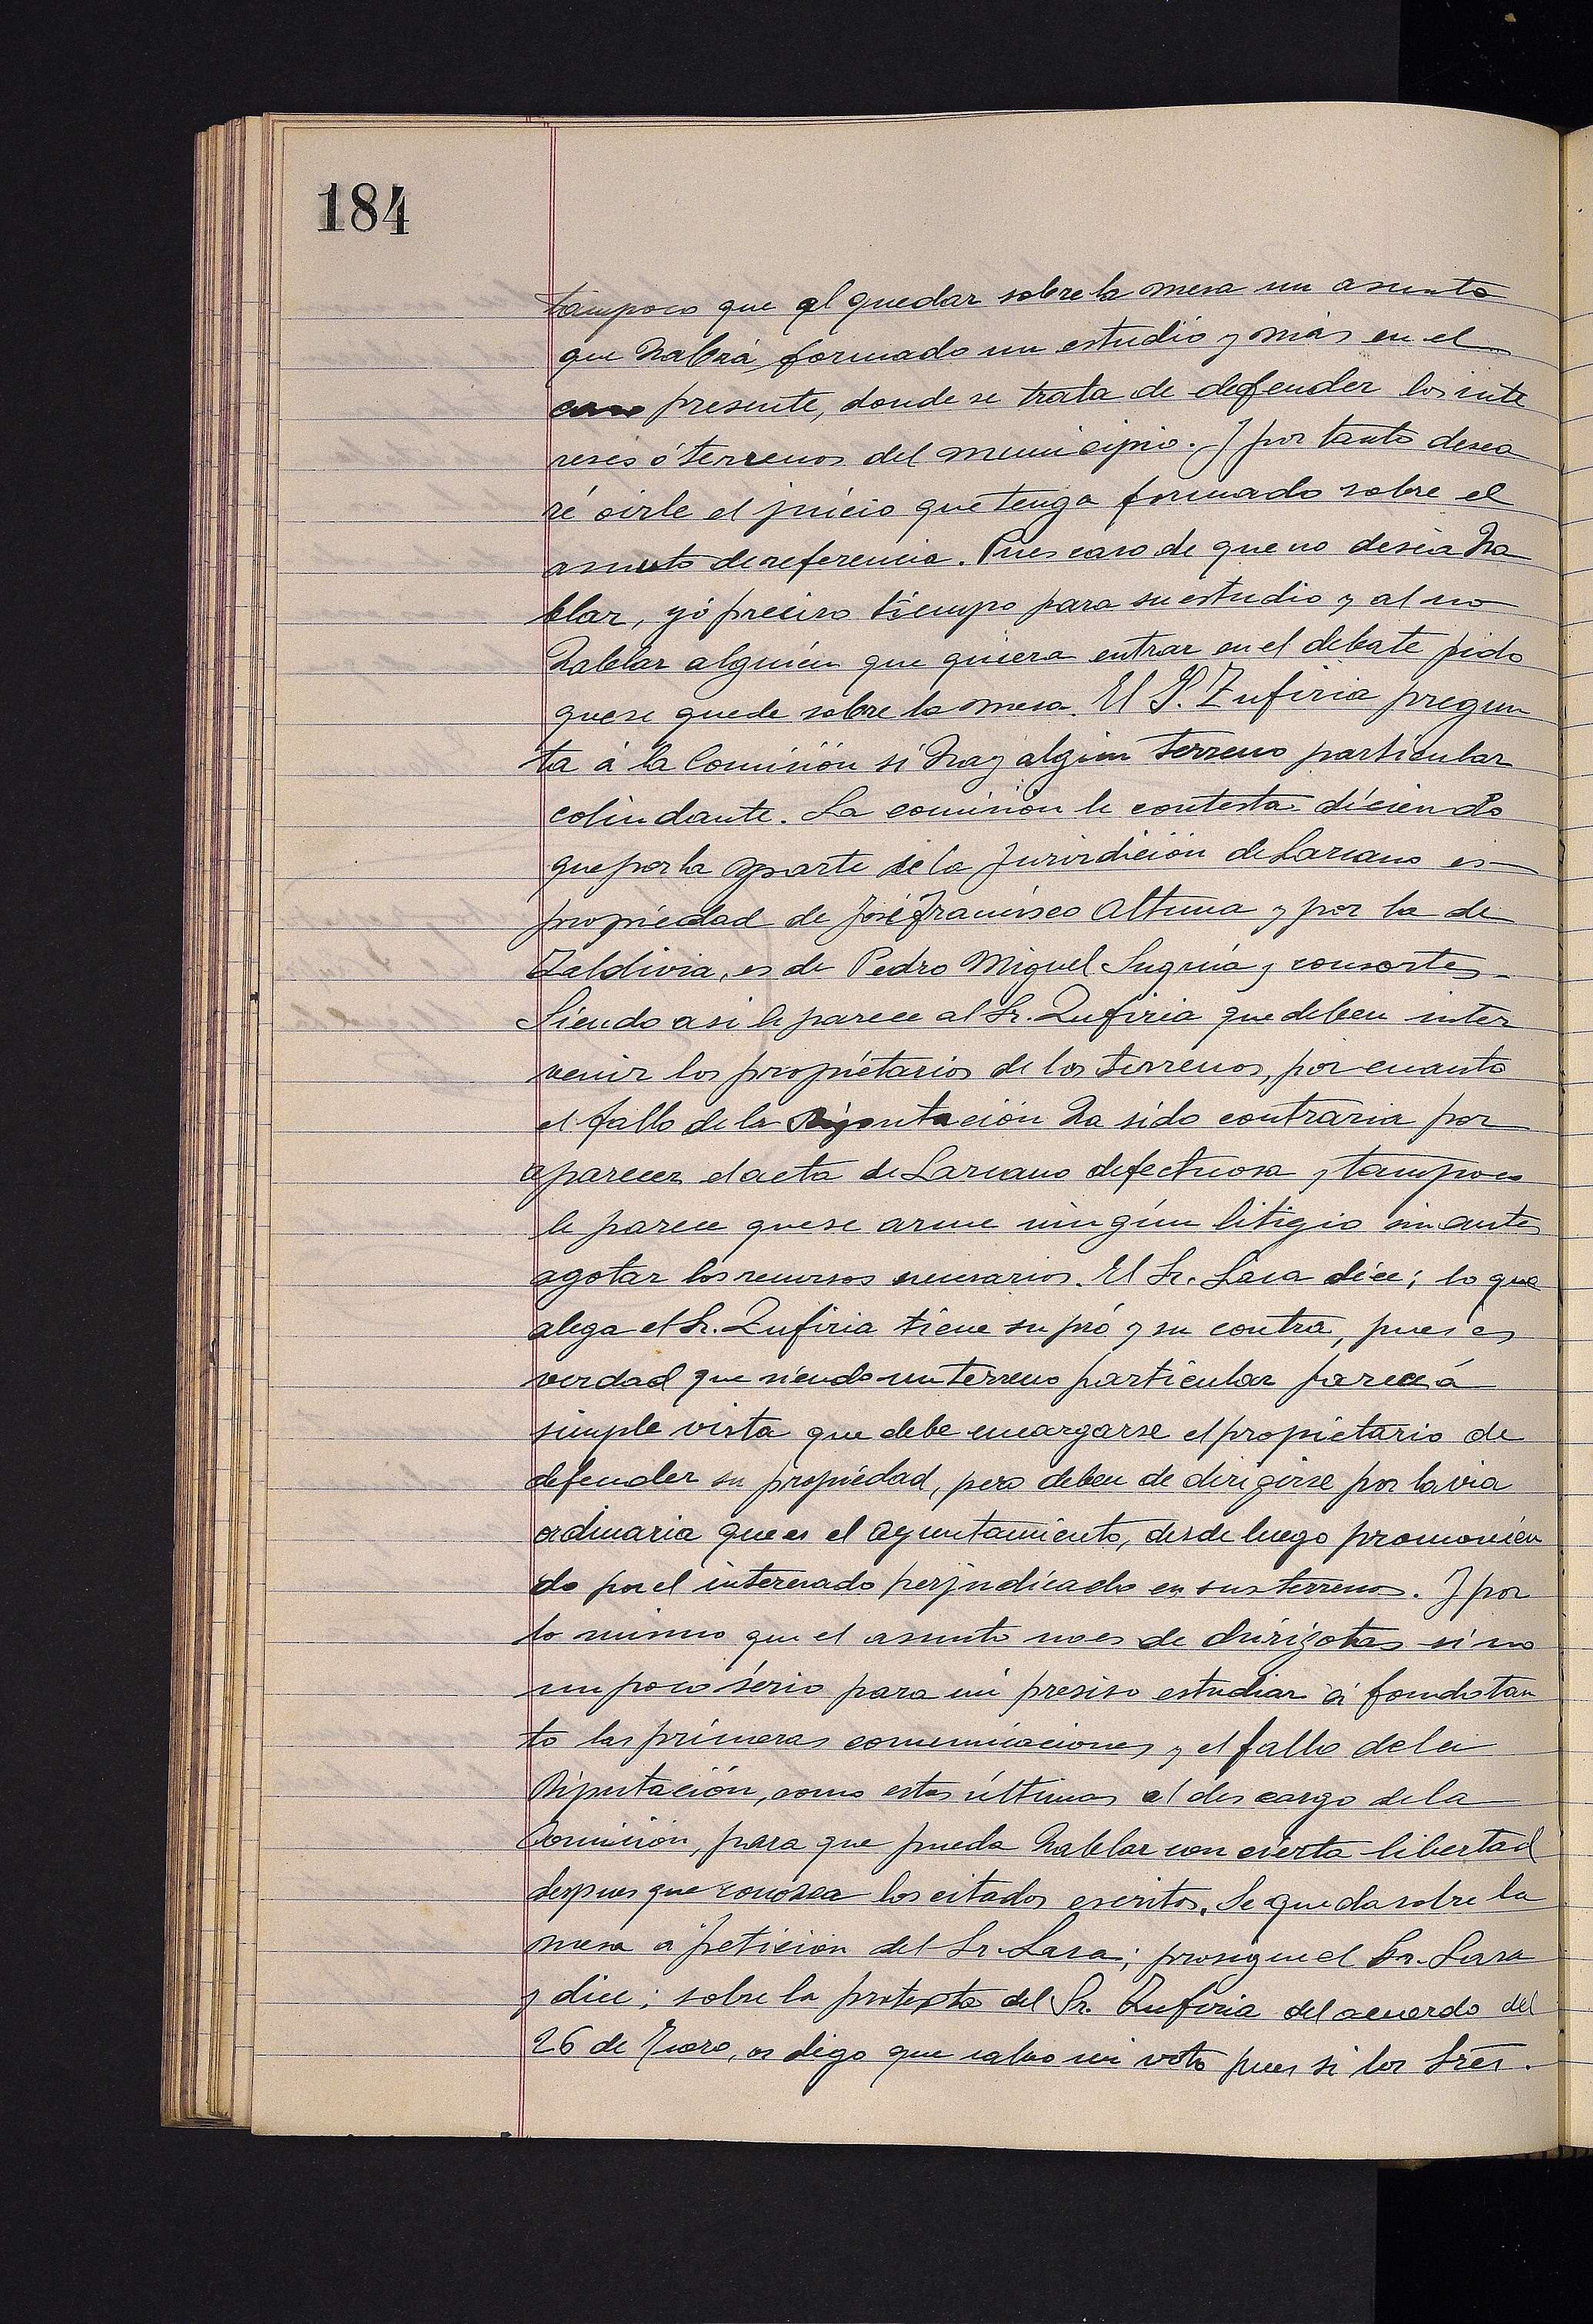 184
tampoco que al quedar sobre la mesa un asunto
que habrá formado un estudio y más en el
caso presente, donde se trata de defender los inte
reses ó terrenos del municipio. Y por tanto desea
ré oirle el juicio que tenga formado sobre el
asunto de referencia. Pues caso de que no desea ha
blar, yó preciso tiempo para su estudio y al no
hablar alguien que quiera entrar en el debate pido
que se quede sobre la mesa. El S. Zufiria pregun
ta á la Comisión si hay algún terreno particular
colindante. La comisión le contesta diciendo
que por la parte de la Jurirdición de Larcano es
propiedad de José Francisco Altuna y por la de
Zaldivia, es de Pedro Miguel Suquía y consortes.
Siendo asi le parece al Sr. Zufiria que deben inter
venir los propietarios de los terrenos, por cuanto
el fallo de la Diputación ha sido contraria por
aparecer el acta de Larcano defectuosa y tampoco
le parece que se arme ningún litigio sin antes
agotar los recursos necesarios. El Sr. Lasa dice; lo que
alega el Sr. Zufiria tiene su pró y su contra, pues es
verdad que siendo un terreno particular parece á
simple vista que debe encargarse el propietario de
defender su propiedad, pero deben de dirigirse por la via
ordinaria que es el Ayuntamiento, desde luego promovien
do por el interesado perjudicado en sus terrenos. Y por
lo mismo que el asunto no es de chirigotas si no
un poco sério para mi presiso estudiar á fondo tan
to las primeras comunicaciones y el fallo de la
Diputación, como estas últimas al descargo de la
Comisión, para que pueda hablar con cierta libertad
despues que conosca los citados escritos. Se queda sobre la
mesa a petición del Sr. Lasa; prosigue el Sr. Lasa
y dice; sobre la protexta del Sr. Zufiria del acuerdo del
26 de Enero, os digo que salvo mi voto pues si los Sres.